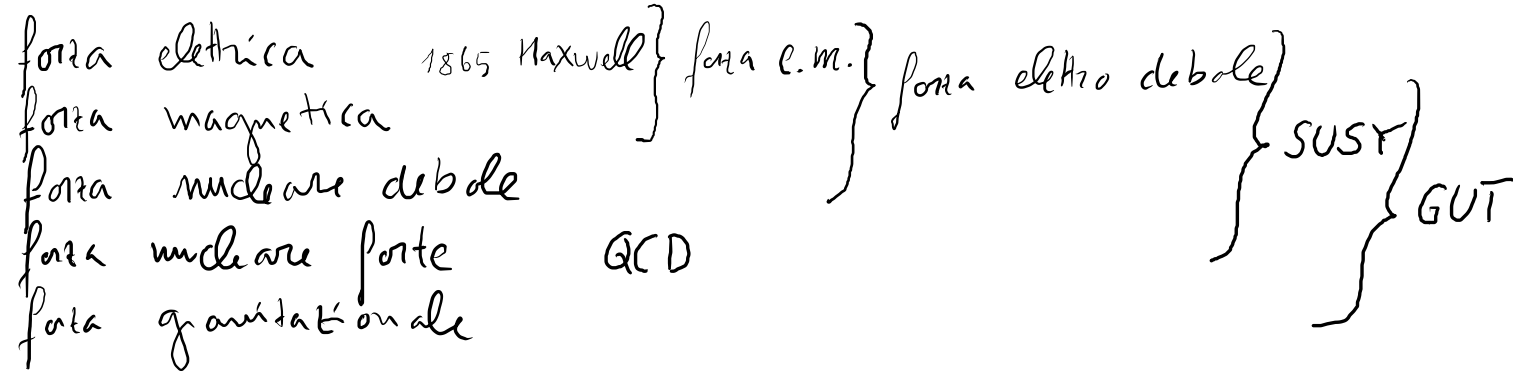 forza elettrica 1865 Maxwell } forza e.m. } forza elettro debole } SUSY } GUT
forza magnetica
forza nucleare debole
forza nucleare forte QCD
forza gravitazionale